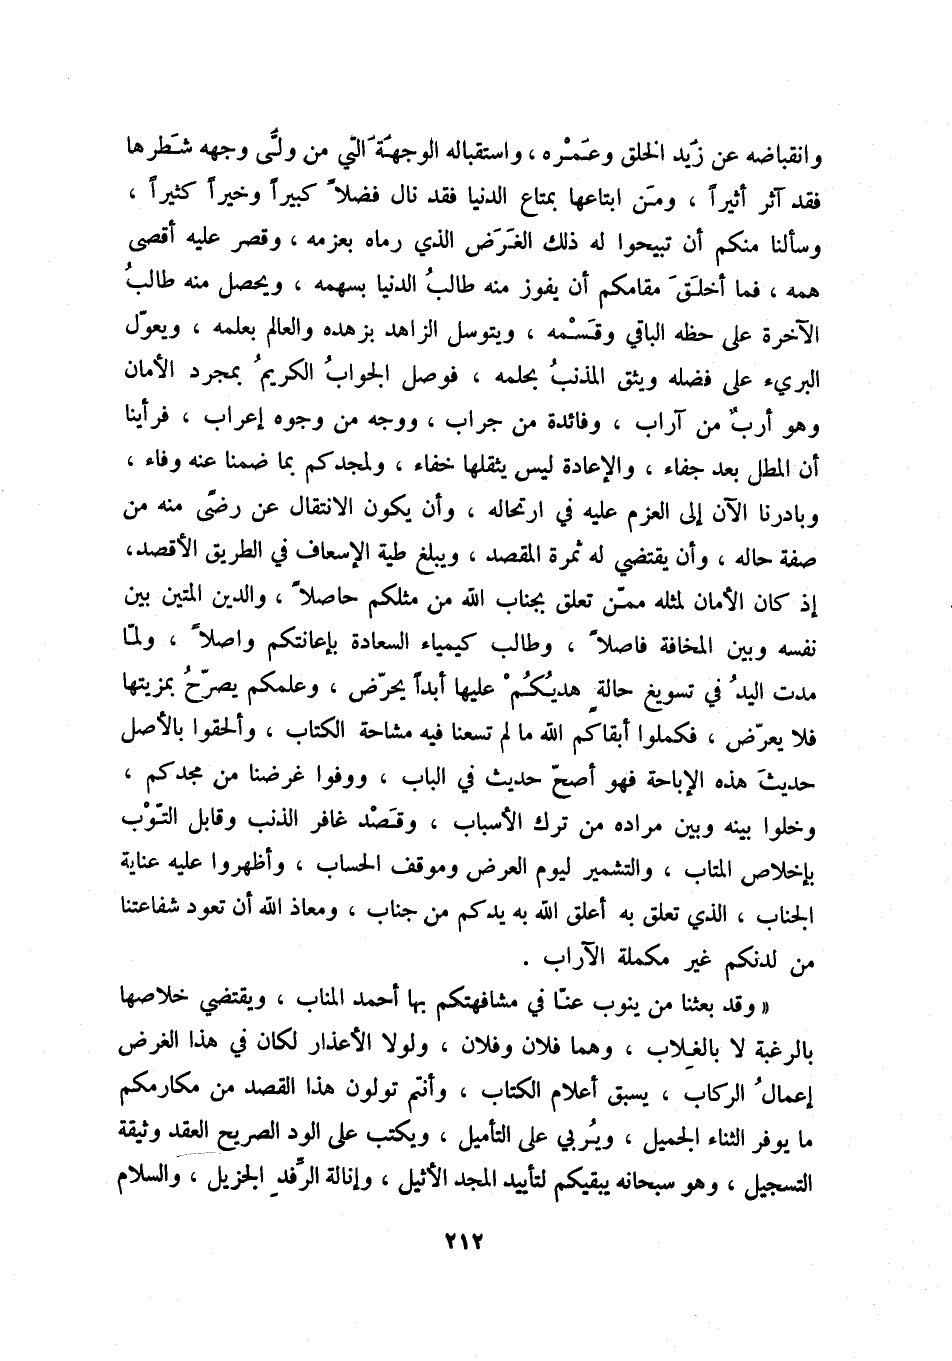 وانقباضه عن زَيد الخلق وعَمْره ، واستقباله الوجهَة َ التي من ولَّى وجهه شَطرها
فقد آثر أثيراً ، ومَن ابتاعها بمتاع الدنيا فقد نال فضلاً كبيراً وخيراً كثيراً ،
وسألنا منكم أن تبيحوا له ذلك الغَرَض الذي رماه بعزمه ، وقصر عليه أقصى
همه ، فما أخلَقَ مقامكم أن يفوز منه طالبُ الدنيا بسهمه ، ويحصل منه طالبُ
الآخرة على حظه الباقي وقَسْمه ، ويتوسل الزاهد بزهده والعالم بعلمه ، ويعوّل
البريء على فضله ويثق المذنبُ بحلمه ، فوصل الجوابُ الكريمُ بمجرد الأمان
وهو أربٌ من آراب ، وفائدة من جراب ، ووجه من وجوه إعراب ، فرأينا
أن المطل بعد جفاء ، والإعادة ليس يثقلها خفاء ، ولمجدكم بما ضمنا عنه وفاء ،
وبادرنا الآن إلى العزم عليه في ارتحاله ، وأن يكون الانتقال عن رضىً منه من
صفة حاله ، وأن يقتضي له ثمرة المقصد ، ويبلغ طية الإسعاف في الطريق الأقصد،
إذ كان الأمان لمثله ممّن تعلق بجناب الله من مثلكم حاصلاً ، والدين المتين بين
نفسه وبين المخافة فاصلاً ، وطالب كيمياء السعادة بإعانتكم واصلاً ، ولمّا
مدت اليدُ في تسويغ حالةٍ هديُكُمْ عليها أبداً يحرّض ، وعلمكم يصرّحُ بمزيتها
فلا يعرّض ، فكملوا أبقاكم الله ما لم تسعنا فيه مشاحة الكتاب ، وألحقوا بالأصل
حديثَ هذه الإباحة فهو أصحّ حديث في الباب ، ووفوا غرضنا من مجدكم ،
وخلوا بينه وبين مراده من ترك الأسباب ، وقَصْد غافر الذنب وقابل التّوْب
بإخلاص المتاب ، والتشمير ليوم العرض وموقف الحساب ، وأظهروا عليه عناية
الجناب ، الذي تعلق به أعلق الله به يدكم من جناب ، ومعاذ الله أن تعود شفاعتنا
من لدنكم غير مكملة الآراب .
« وقد بعثنا من ينوب عنّا في مشافهتكم بها أحمد المناب ، ويقتضي خلاصها
بالرغبة لا بالغِلاب ، وهما فلان وفلان ، ولولا الأعذار لكان في هذا الغرض
إعمالُ الركاب ، يسبق أعلام الكتاب ، وأنتم تولون هذا القصد من مكارمكم
ما يوفر الثناء الجميل ، ويُربي على التأميل ، ويكتب على الود الصريح العقد وثيقة
التسجيل ، وهو سبحانه يبقيكم لتأييد المجد الأثيل ، وإنالة الرِّفدِ الجزيل ، والسلام
٢١٢